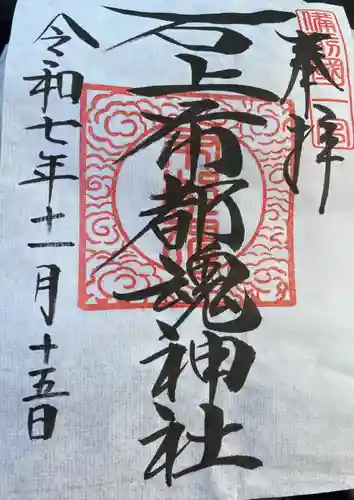 備前國一宮
奉拝
石上布都魂神社
令和七年十一月十五日